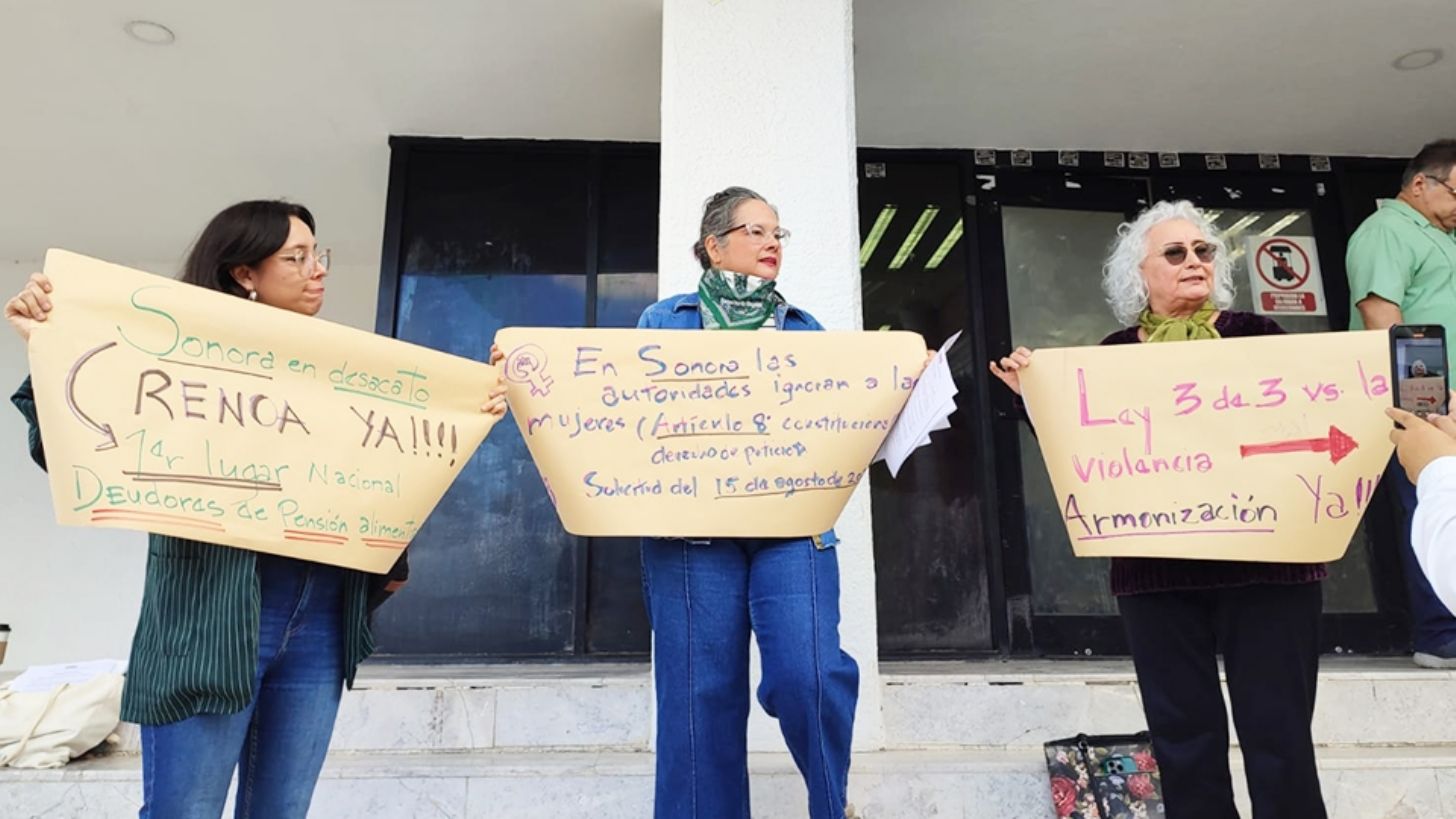 Sonora en desacato
RENOA YA!!!!
1ar lugar Nacional
Deudores de Pensión aliment
En Sonora las
autoridades ignoran a la
mujeres (Artículo 8: constitucional
derecho de petición
Solicitud del 15 de agosto de 20
Ley 3 de 3 vs. la
violencia
Armonización Ya!!!